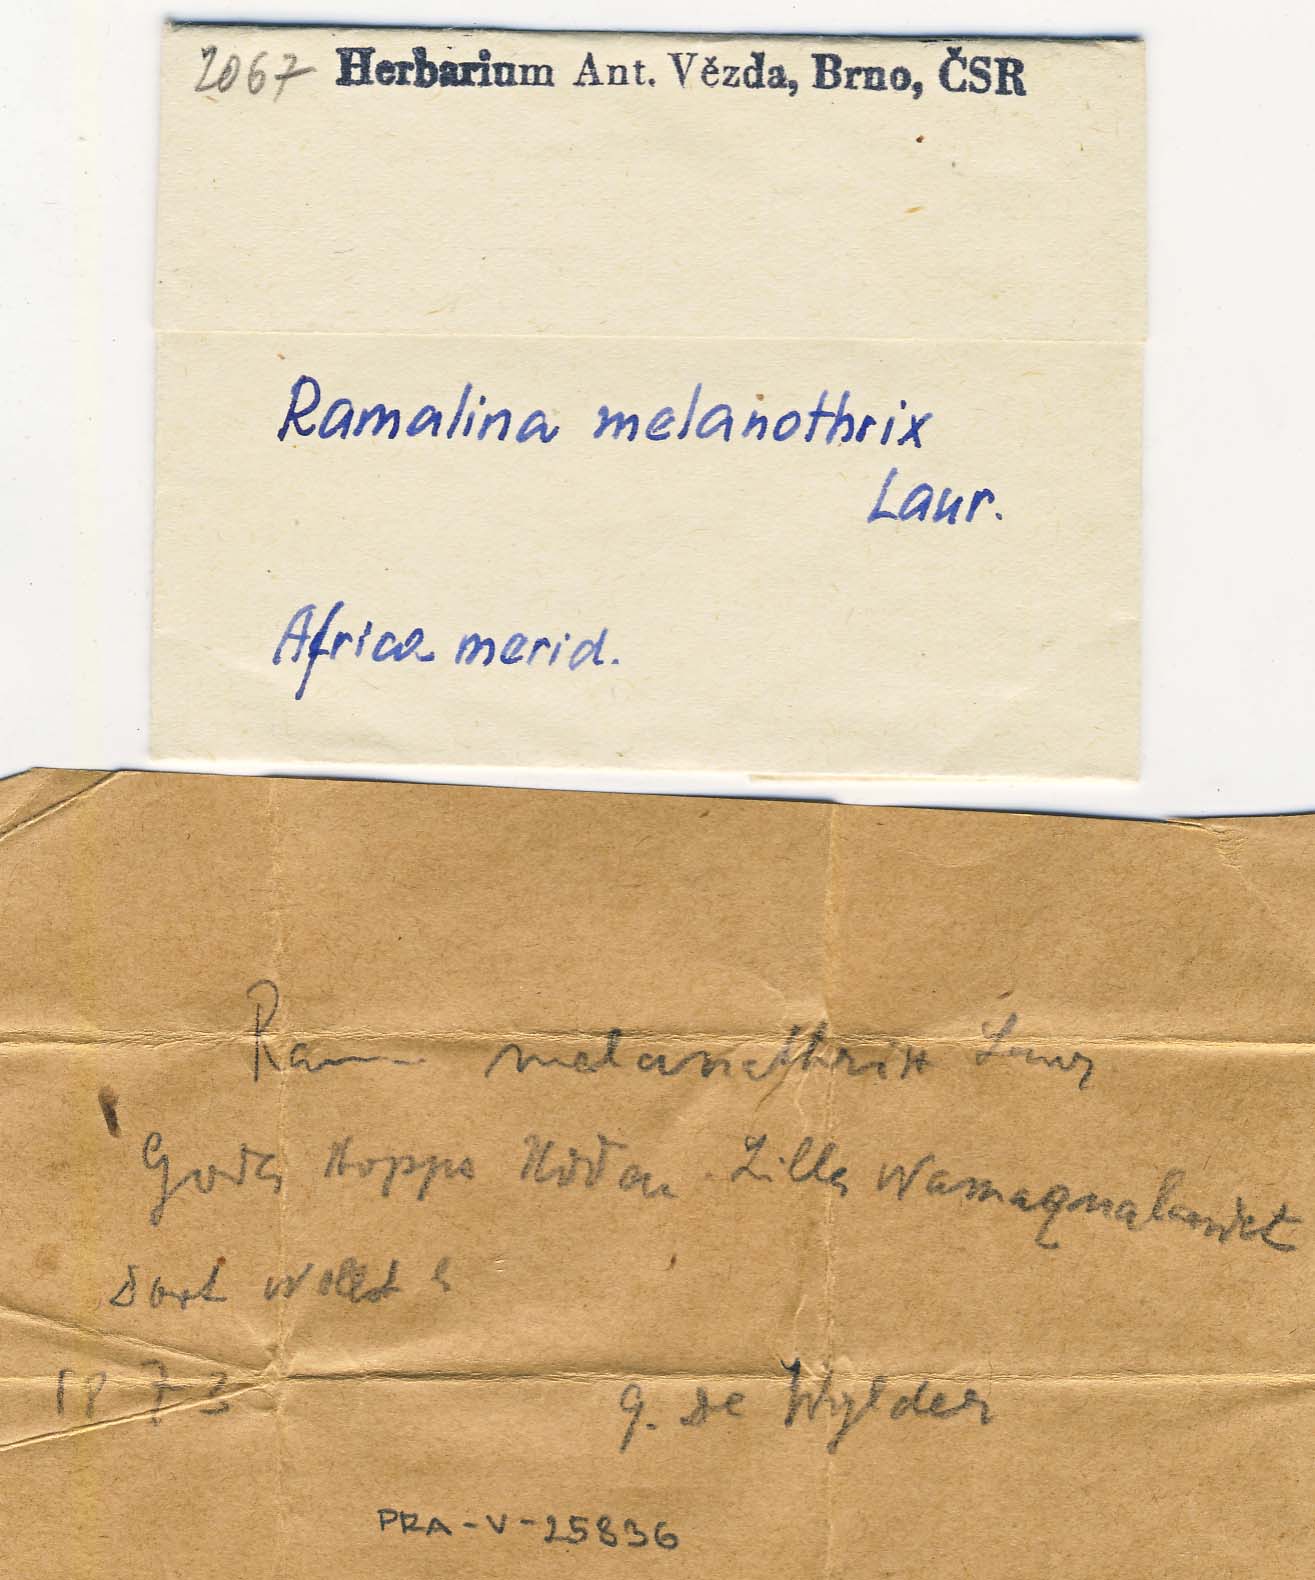 2067 Herbarium Ant. Vězda, Brno, ČSR
Ramalina melanothrix
Laur.
Africa merid.
Ram melanothrix Laur
Goda Hopps Udden. Lilla Namaqualandet
1873 G. De Wylder
PRA-V-25836